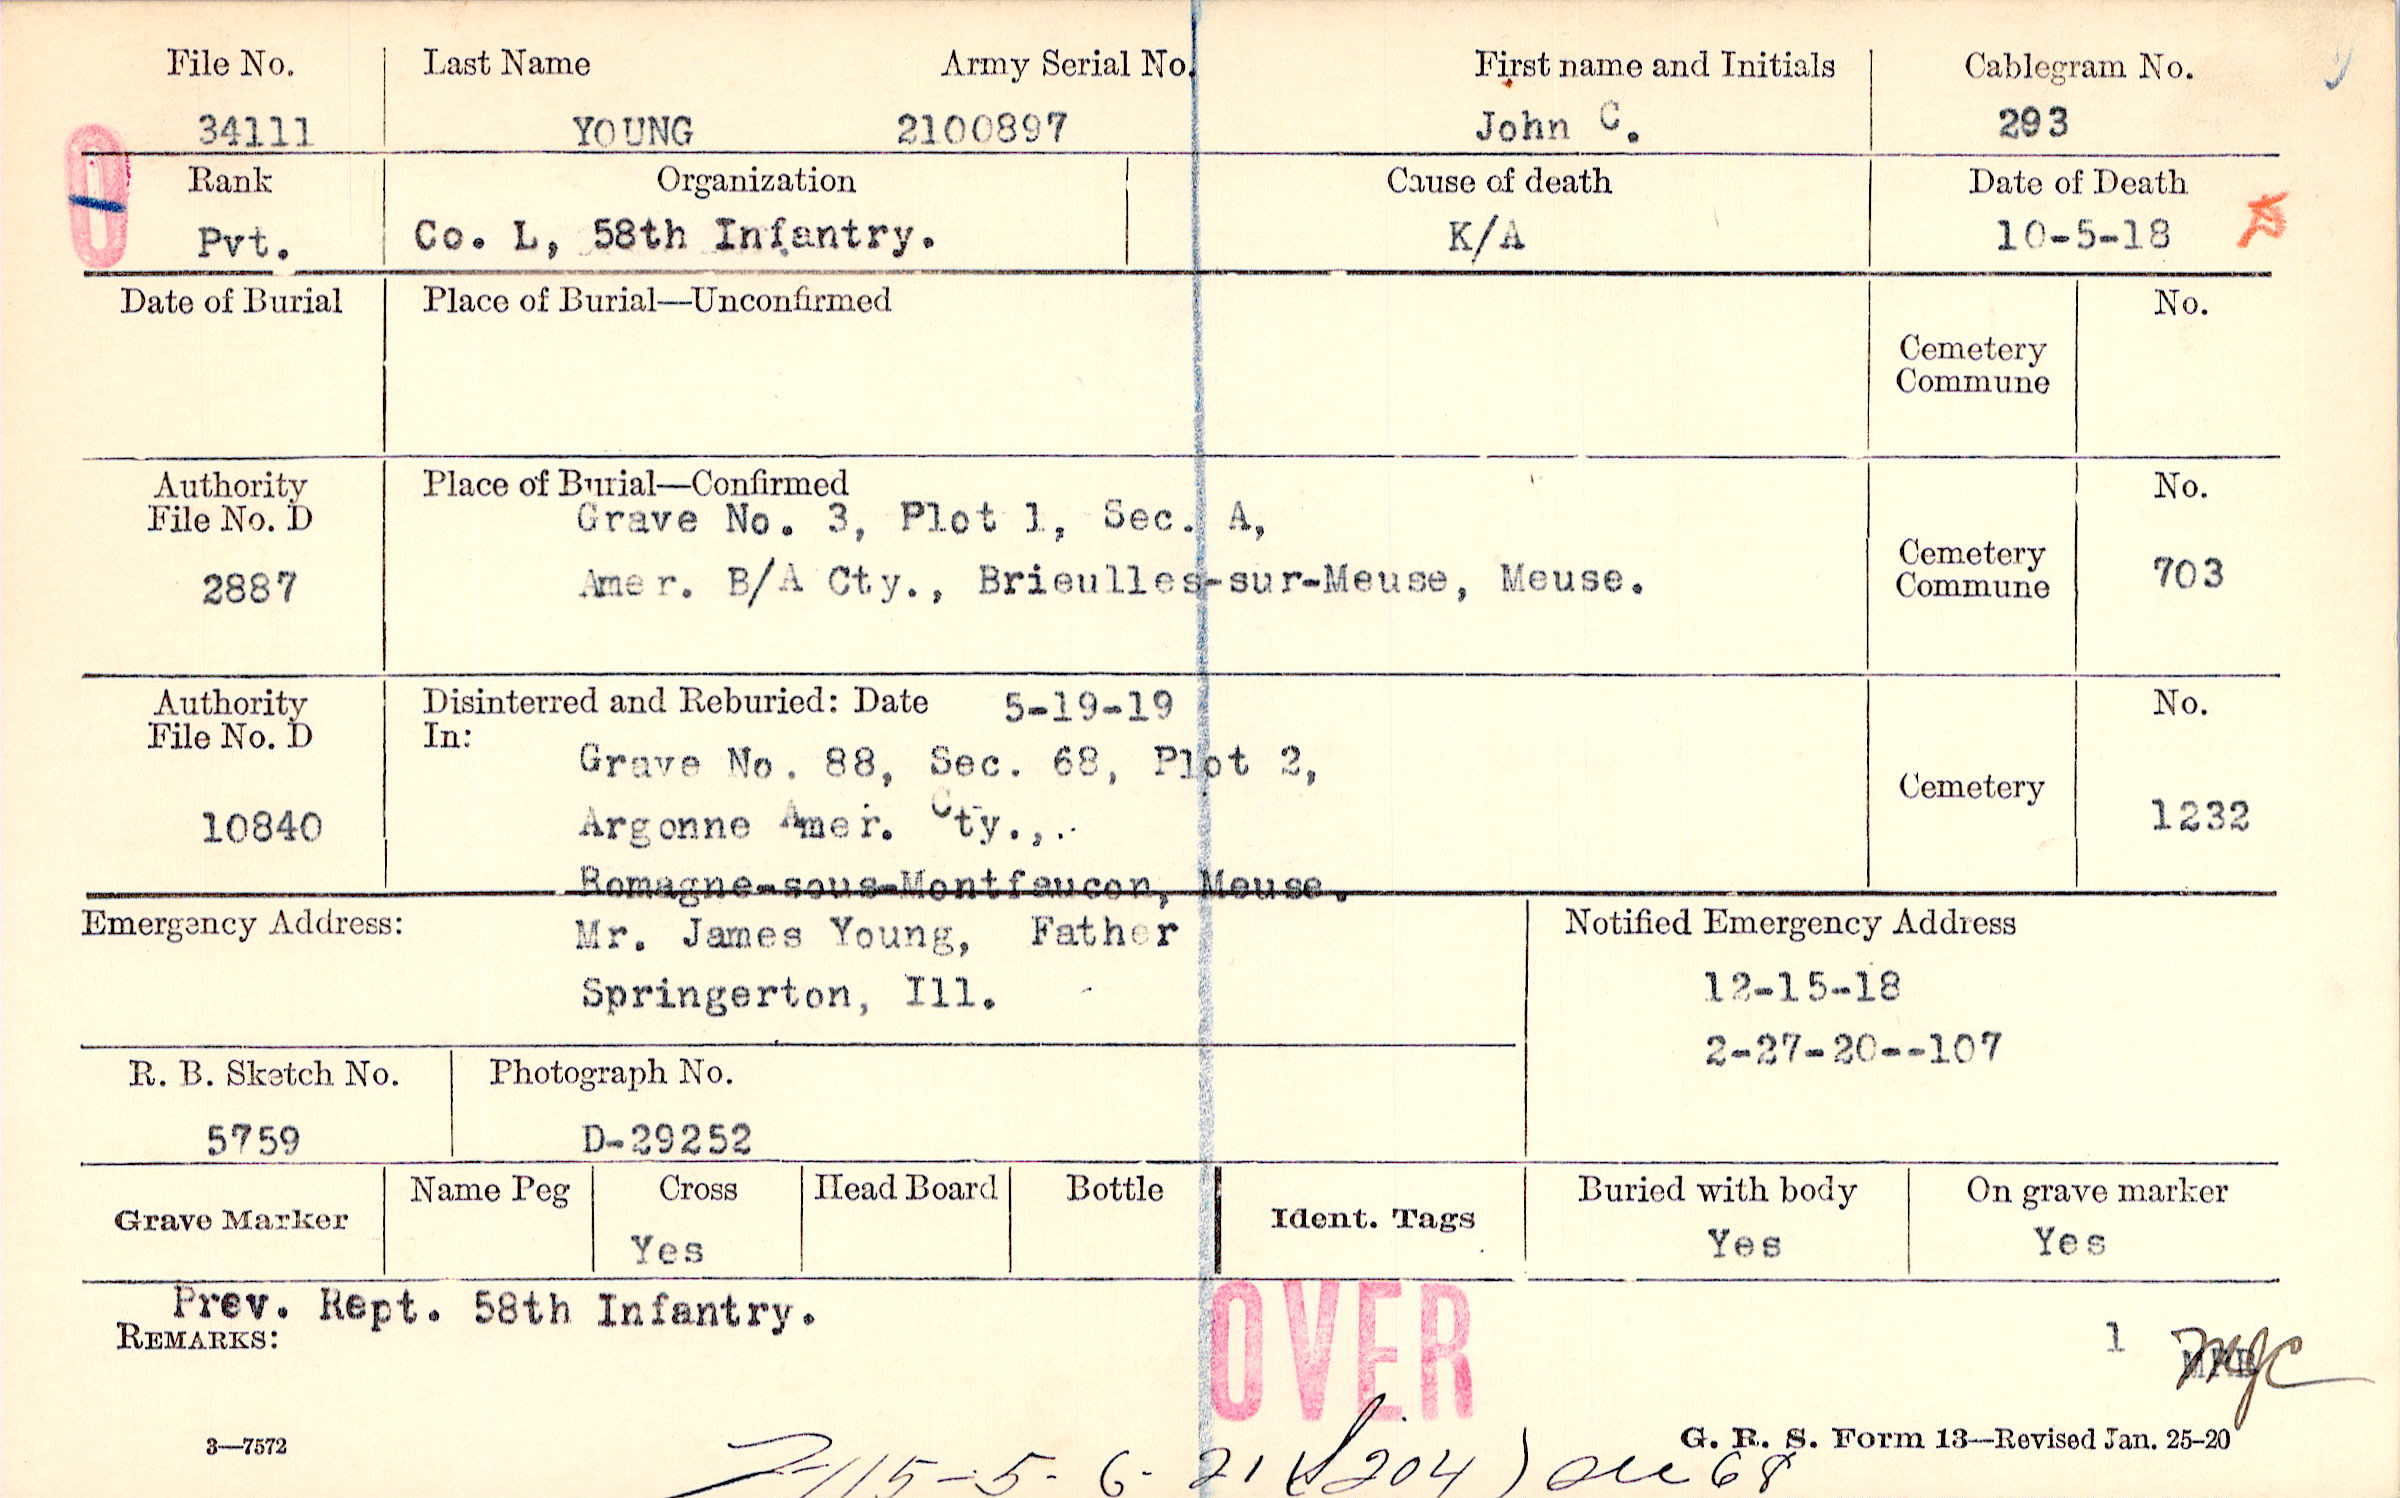 File No. Last Name Army Serial No. First name and Initials Cablegram No.
34111 YOUNG 2100897 John C. 293
Rank Organization Cause of death Date of Death
Pvt. Co. L, 58th Infantry. K/A 10-5-18
Date of Burial Place of Burial—Unconfirmed No.
Cemetery
Commune
Authority Place of Burial—Confirmed No.
File No. D Grave No. 3, Plot 1, Sec. A,
Cemetery
2887 Amer. B/A Cty., Brieulles-sur-Meuse, Meuse. Commune 703
Authority Disinterred and Reburied: Date 5-19-19 No.
File No. D In:
Grave No. 88, Sec. 68, Plot 2,
Cemetery
10840 Argonne Amer. Cty.,. 1232
Romagne-sous-Montfaucon, Meuse.
Emergency Address: Mr. James Young, Father Notified Emergency Address
Springerton, Ill. 12-15-18
2-27-20--107
R. B. Sketch No. Photograph No.
5759 D-29252
Grave Marker Name Peg Cross Head Board Bottle Ident. Tags Buried with body On grave marker
Yes Yes Yes
Prev. Rept. 58th Infantry.
REMARKS:
OVER
1
3—7572 G. R. S. Form 13—Revised Jan. 25-20
5-6-21 204) 68